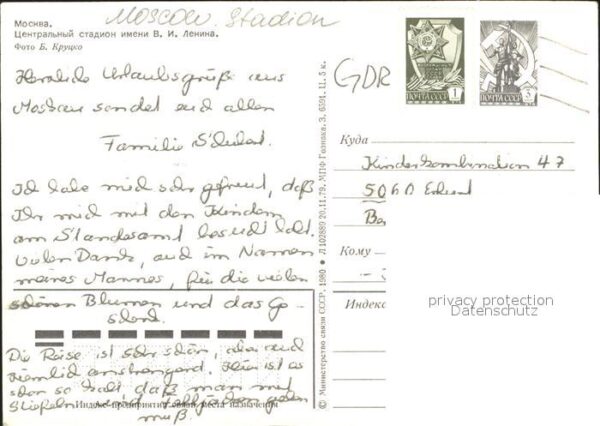 Moscow. Stadion
Москва.
Центральный стадион имени В. И. Ленина.
Фото Б. Круцко
Herzliche Urlaubsgrüße aus
Moskau sendet euch allen
Familie
Ich habe mich sehr gefreut, daß
Ihr mich mit den Kindern
am Standesamt besucht habt.
Vielen Dank, auch im Namen
meines Mannes, für die vielen
schönen Blumen und das Ge-
schenk.
Die Reise ist sehr schön, aber auch
ziemlich anstrengend. Hier ist es
schon so kalt daß man mit
Stiefeln und gehen
muß.
Индекс предприятия связи места назначения
© Министерство связи СССР. 1980 Л 102889 20.11.79. МПФ Гознака. З. 6591. Ц. 5 к.
GDR
ПОЧТА СССР 1
ПОЧТА СССР 3
Куда
Kinderkombination 47
5060 Erfurt
Кому
Индекс
privacy protection
Datenschutz